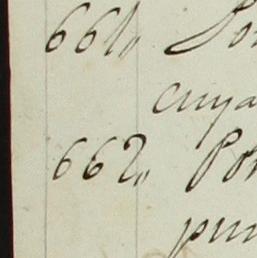 661,, Po
cuya
662,, Po
pu